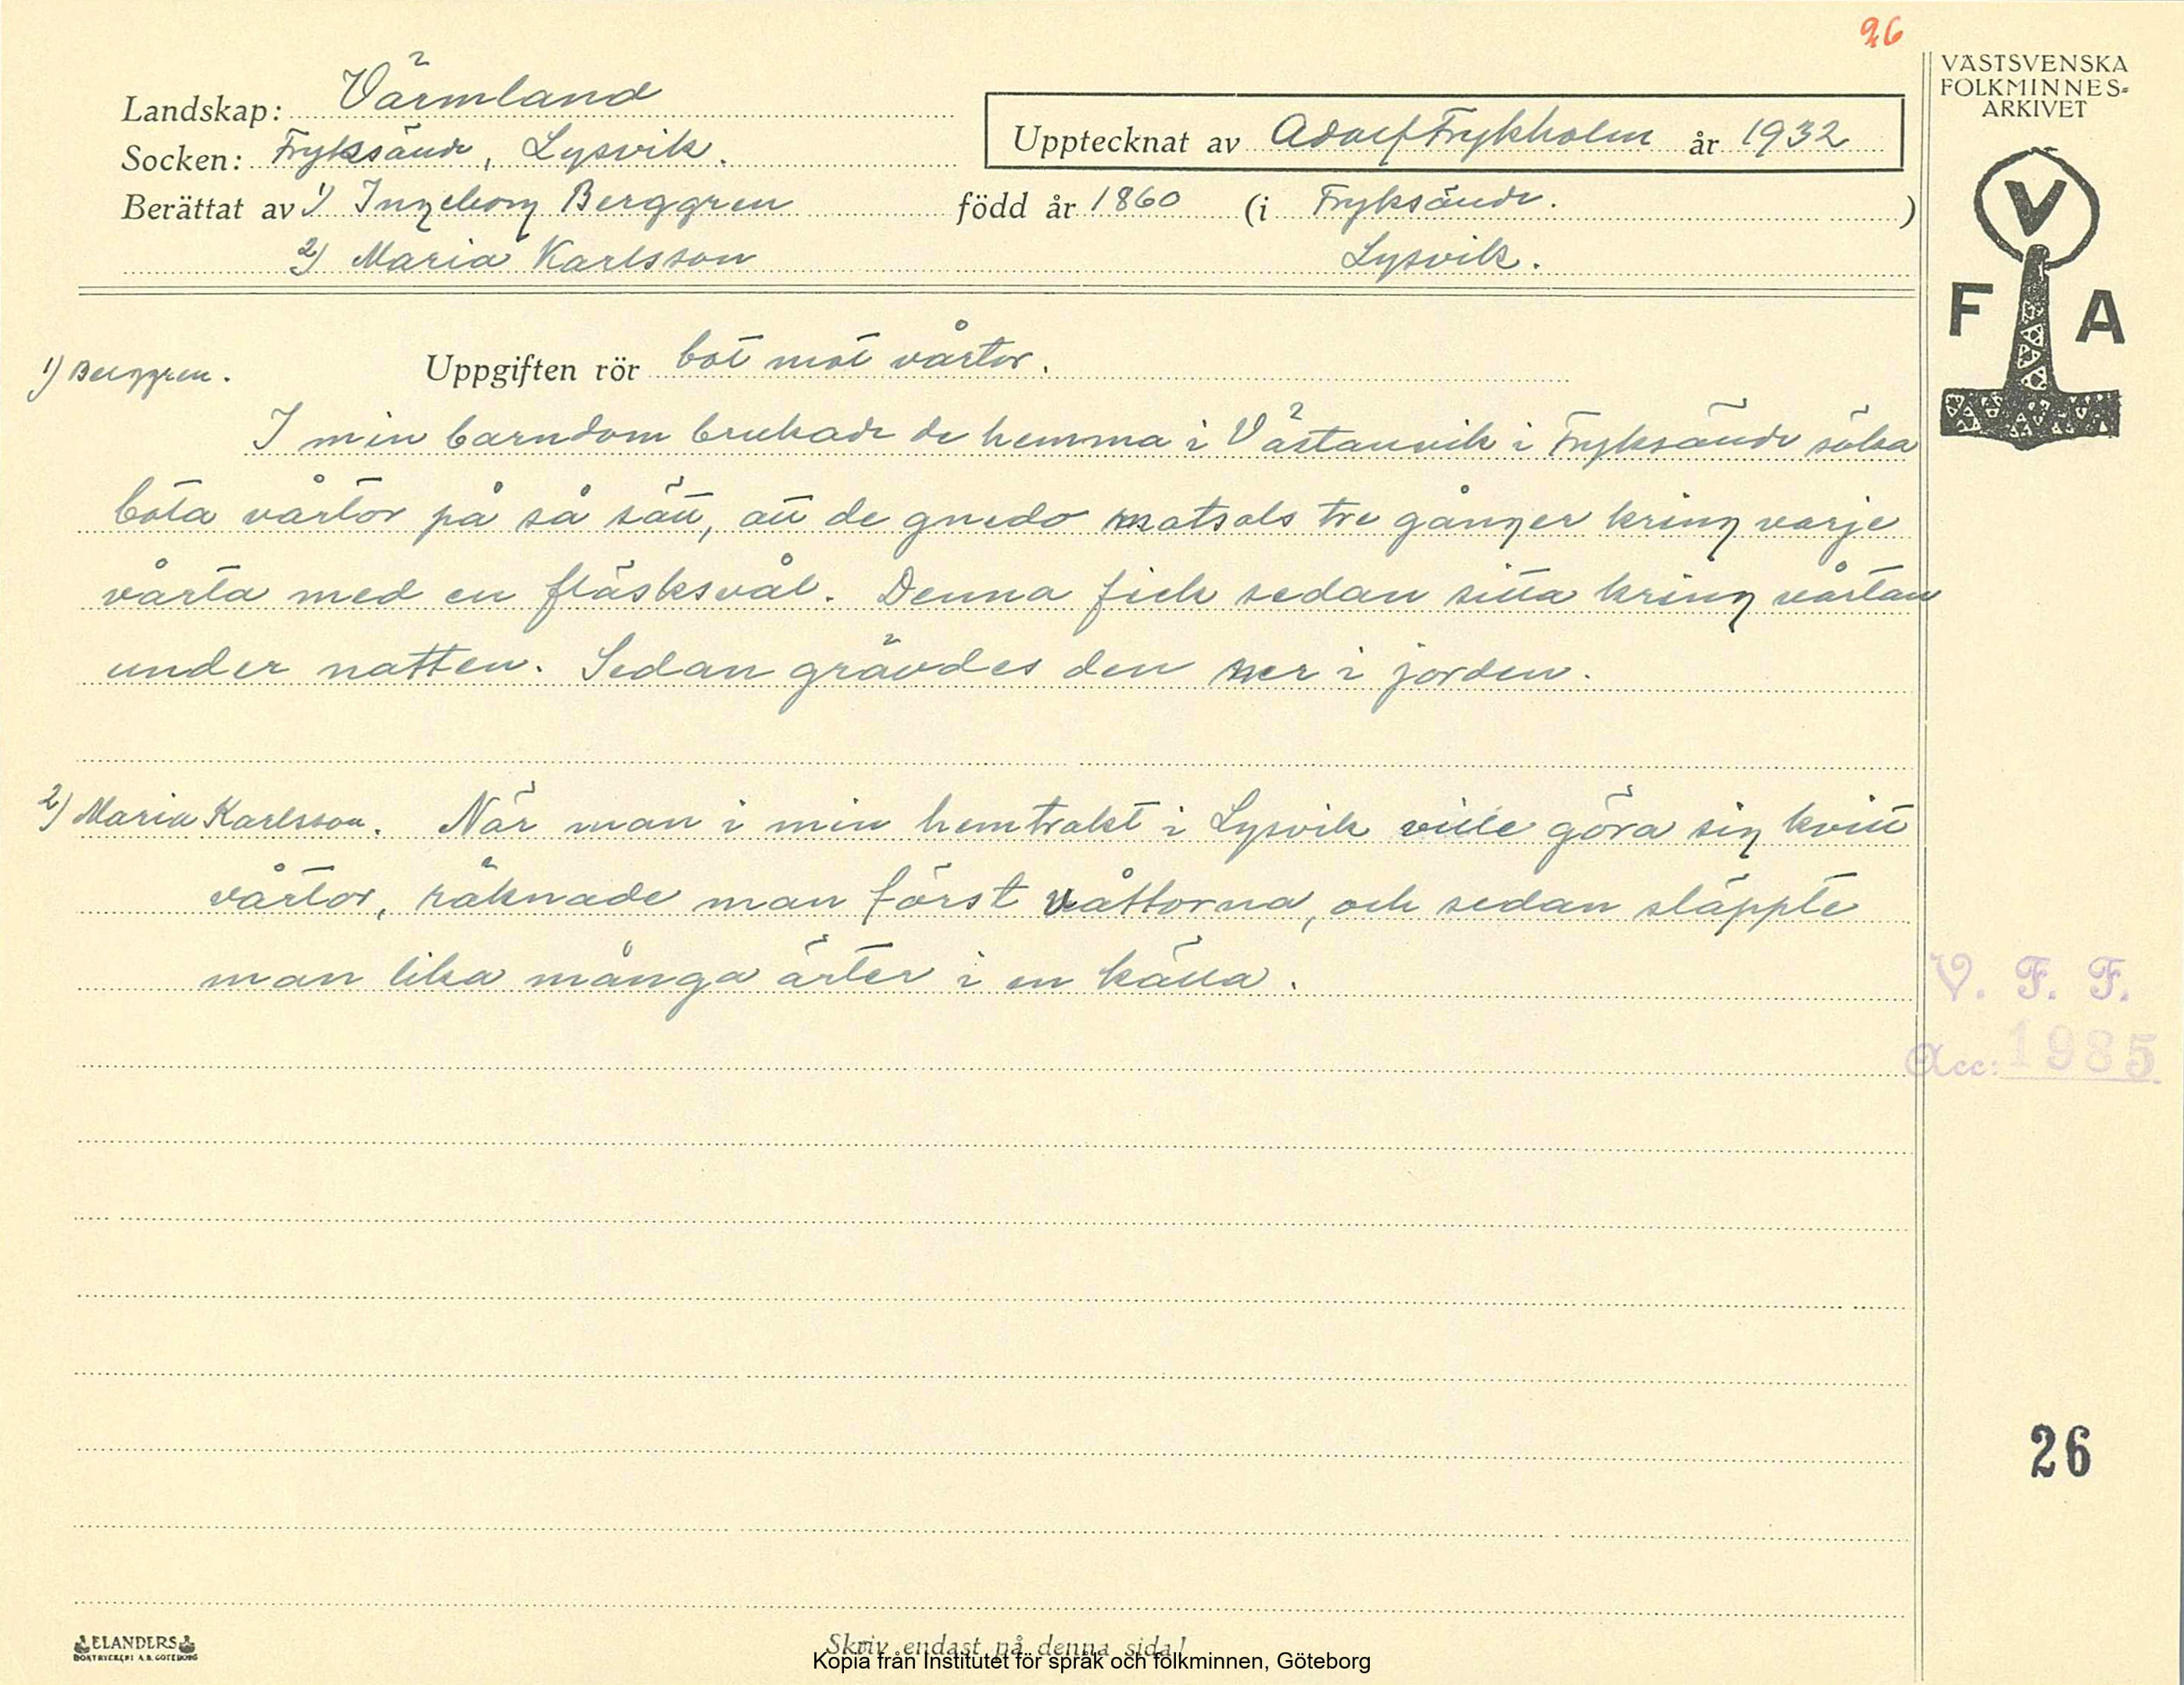 26
VÄSTSVENSKA
FOLKMINNES-
ARKIVET
Landskap: Värmland
Socken: Fryksände, Lysvik.
Upptecknat av Adolf Frykholm år 1932
Berättat av 1) Ingeborg Berggren född år 1860 (i Fryksände.)
2) Maria Karlsson Lysvik.
V
F A
1) Berggren. Uppgiften rör bot mot vårtor.
I min barndom brukade de hemma i Västanvik i Fryksände söka
bota vårtor på så sätt, att de gnedo motsols tre gånger kring varje
vårta med en fläsksvål. Denna fick sedan sitta kring vårtan
under natten. Sedan grävdes den ner i jorden.
2) Maria Karlsson. När man i min hemtrakt i Lysvik ville göra sig kvitt
vårtor, räknade man först vårtorna, och sedan släppte
man lika många ärter i en källa.
V. F. F.
Acc: 1985
26
ELANDERS
BOKTRYCKERI A.B. GÖTEBORG
Skriv endast på denna sida!
Kopia från Institutet för språk och folkminnen, Göteborg